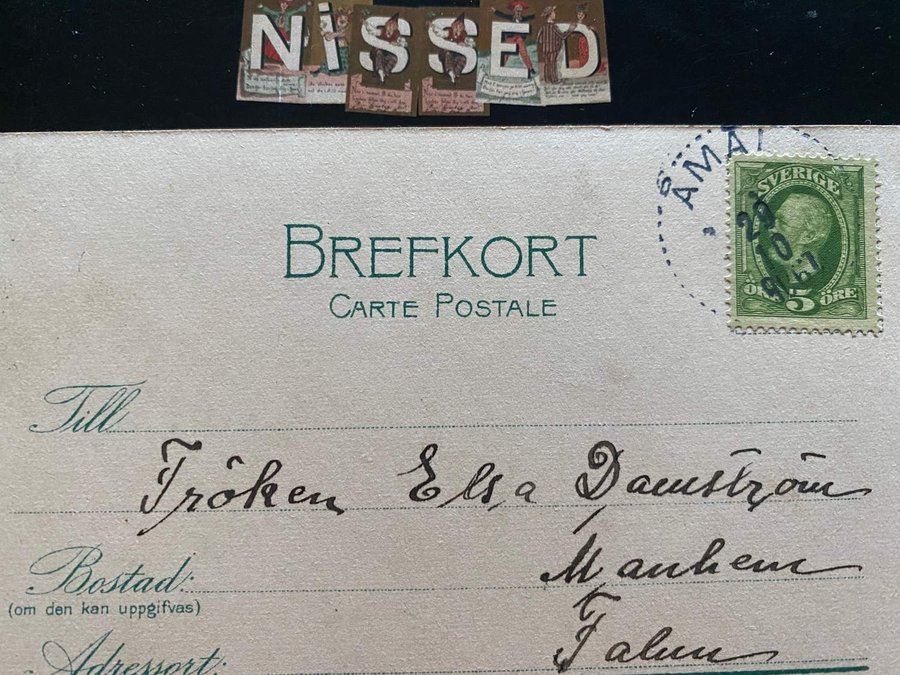 NiSSED
BREFKORT
CARTE POSTALE
ÅMÅL
20
10
SVERIGE
5 ÖRE
Till
Fröken Elsa Damström
Bostad:
(om den kan uppgifvas)
Manhem
Adressort:
Falun